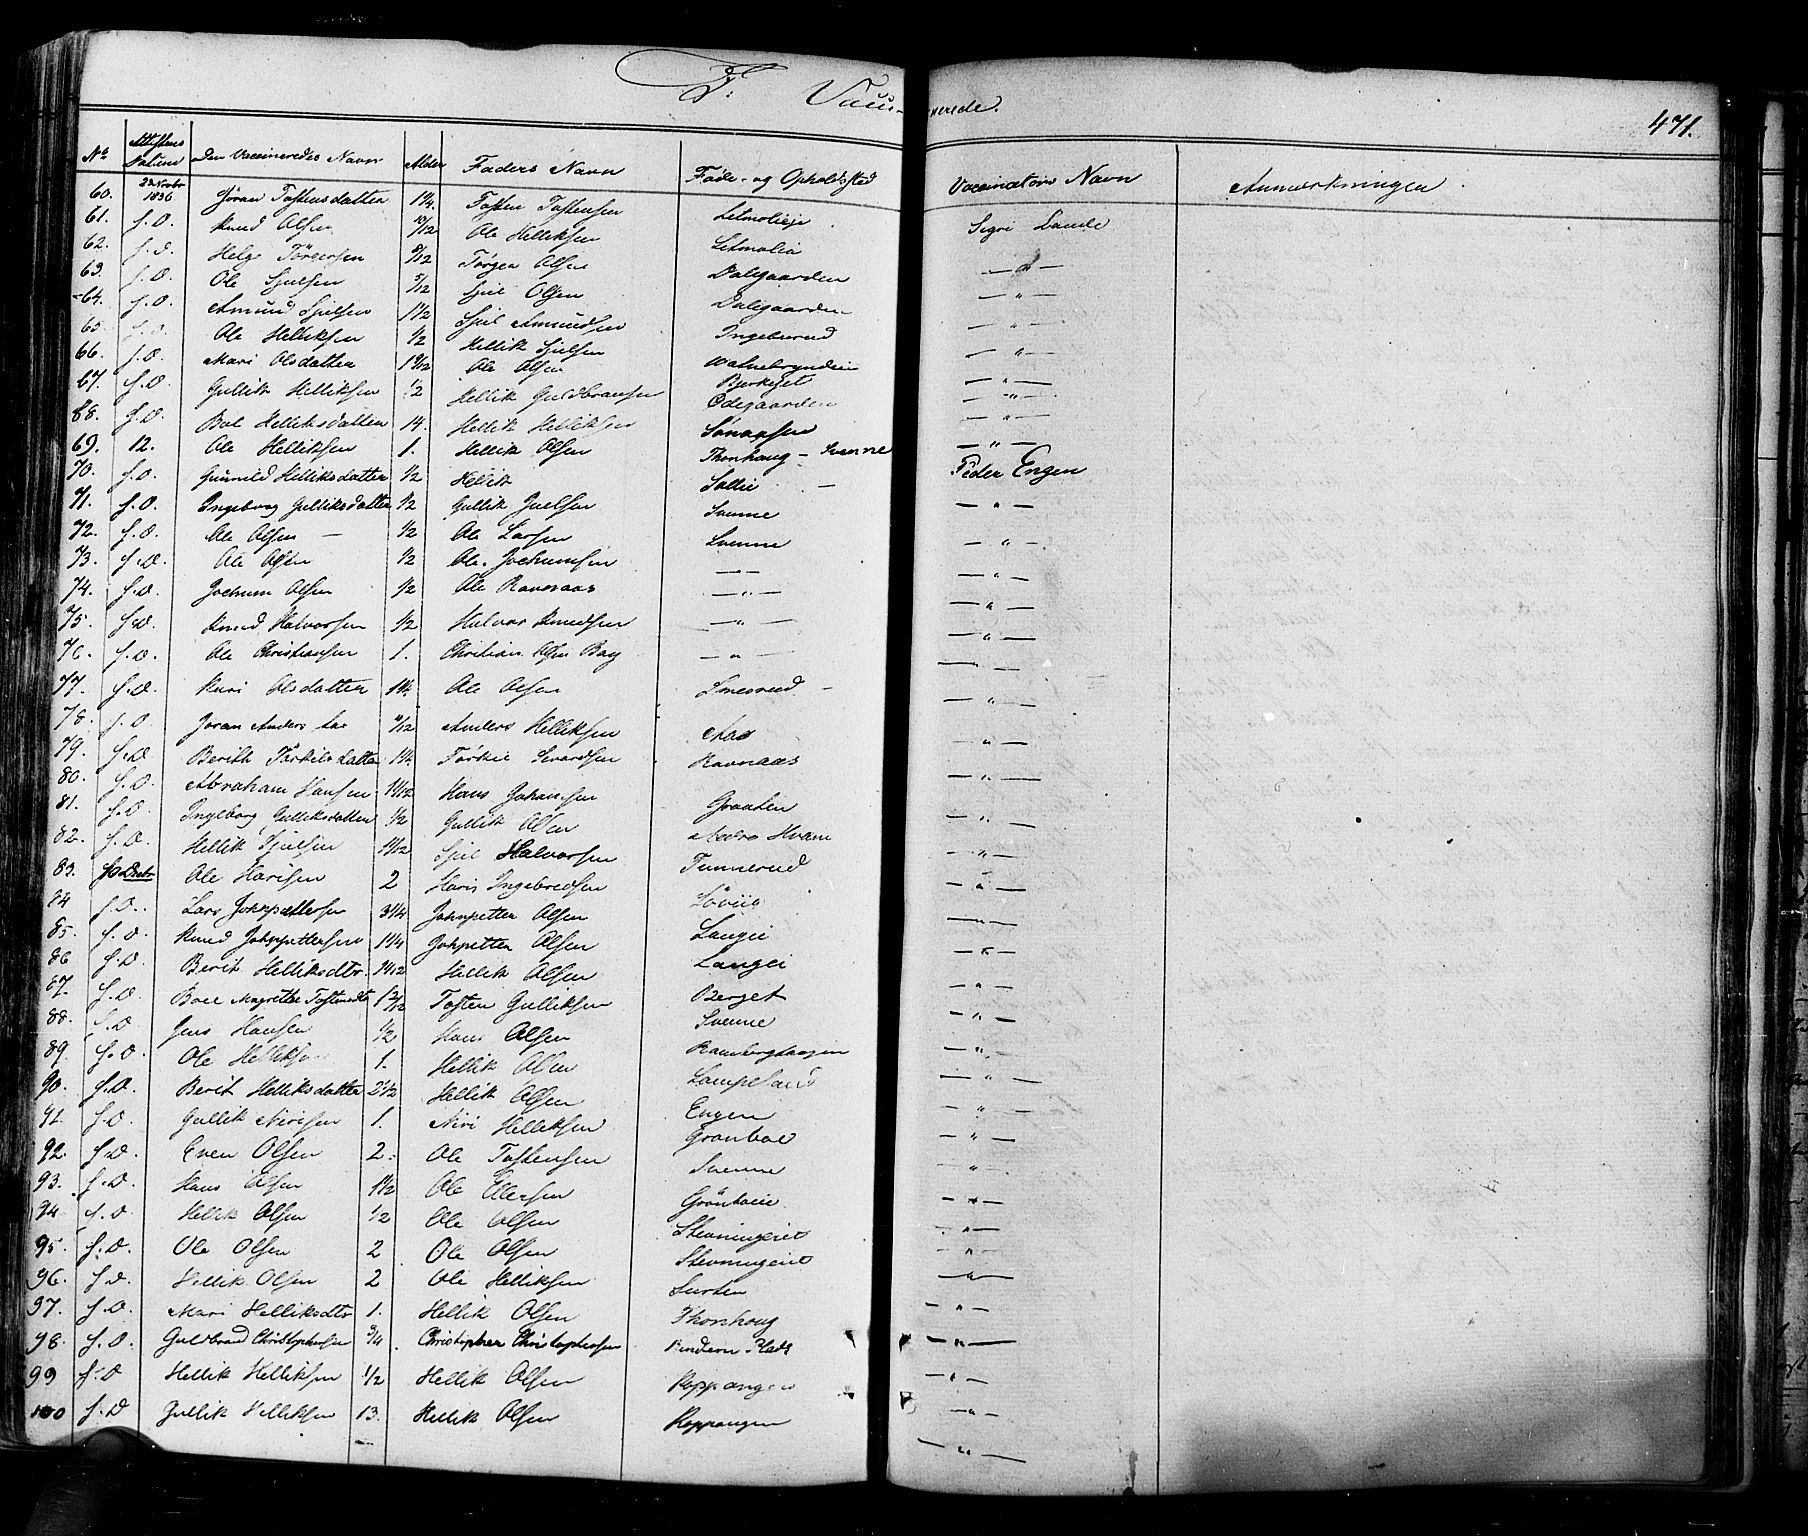 F: Vaccinerede.
471.
No Attestens Datum Den Vaccineredes Navn Alder Faders Navn Føde- og Opholdsted Vaccinatörs Navn Anmærkninger
60. 23 Novbr 1836 Jöran Tostensdatter 1 1/4. Tosten Tostensen Letmolieje Sigri Lande
61. f. D. Knud Olsen 10/12 Ole Helliksen Letmolia — " —
62. f. d. Helge Törgersen 8/12 Törger Olsen Dalegaarden — " —
63. f. D. Ole Sjulsen 5/12 Sjul Olsen Dalegaarden — " —
64. f. D. Amund Sjulsen 1 1/2 Sjul Amundsen Ingeburud — " —
65. f. D. Ole Helliksen 1/2 Hellik Sjulsen — " —
66. f. D. Mari Olsdatter Ole Olsen Bjerkeset — " —
67. f. D. Gullik Helliksen 1/2 Hellik Guldbransen Ødegaarden — " —
68. f. D. Boel Helliksdatter 14. Hellik Helliksen — " —
69. 12. Ole Helliksen 1. Hellik Olsen Thonhaug – Svenne Peder Engen
70. f. D. Gunnild Helliksdatter 1/2 Hellik Sollie — " —
71. f. D. Ingeborg Gulliksdatter 1/2 Gullik Juelsen Svenne — " —
72. f. D. Ole Olsen — 1/2 Ole Larsen Svenne — " —
73. f. D. Ole Olsen 1/2 Ole Jochumsen — " — — " —
74. f. D. Jochum Olsen 1/2 Ole Ravnaas — " — — " —
75. f. D. Knud Halvorsen 1/2 Halvor Knudsen — " — — " —
76. f. D. Ole Christiansen 1. Christian Olsen Bay — " — — " —
77. f. D. Kari Olsdatter 1 1/4. Ole Olsen Smesrud — " —
78. f. D. Joran Anders Anders Helliksen Aas — " —
79. f. D. Berith Törkilsdatter 1 1/4. Törkil Sivardsen Ravnaas — " —
80. f. D. Abraham Hansen Hans Johansen Graaten — " —
81. f. D. Ingeborg Gulliksdatter 1/2 Gullik Olsen Nedre Hvam — " —
82. f. D. Hellik Sjulsen Sjul Halvorsen Tunnerud — " —
83. Ole Harisen 2 Haris Ingebredsen — " —
84 f. D. Lars Johnpettersen 3 1/4 Johnpetter Olsen Langei — " —
85. f. D. Knud Johnpettersen 1 1/4 Johnpetter Olsen Langei — " —
86 f. D. Berit Helliksdtr. Hellik Olsen Berget — " —
87. f. D. Boel Magrethe Tostensdtr Tosten Gulliksen Svenne — " —
88. f. D. Jens Hansen 1/2 Hans Olsen Ramberghaugen — " —
89. f. D. Ole Helliksen 1. Hellik Olsen Lampeland — " —
90. f. D. Berit Helliksdatter 2 1/2 Hellik Olsen Engen — " —
91. f. D. Gullik Nirisen 1. Niri Helliksen Grönboe — " —
92. f. D. Even Olsen 2. Ole Tostensen Svenne — " —
93. f. D. Hans Olsen 1 1/2 Ole Ellefsen — " —
94 f. D. Hellik Olsen 1/2 Ole Olsen Stevningeiet — " —
95. f. D. Ole Olsen 2 Ole Olsen Stevningeiet — " —
96. f. D. Hellik Olsen 2 Ole Helliksen — " —
97. f. D. Mari Helliksdtr 1. Hellik Olsen Thonhoug — " —
98. f. D. Guldbrand Christophersen 3/4 Christopher Christophersen — " —
99 f. D Hellik Helliksen 1/2 Hellik Olsen Koppangen — " —
100 f. D Gullik Helliksen 13. Hellik Olsen Koppangen — " —